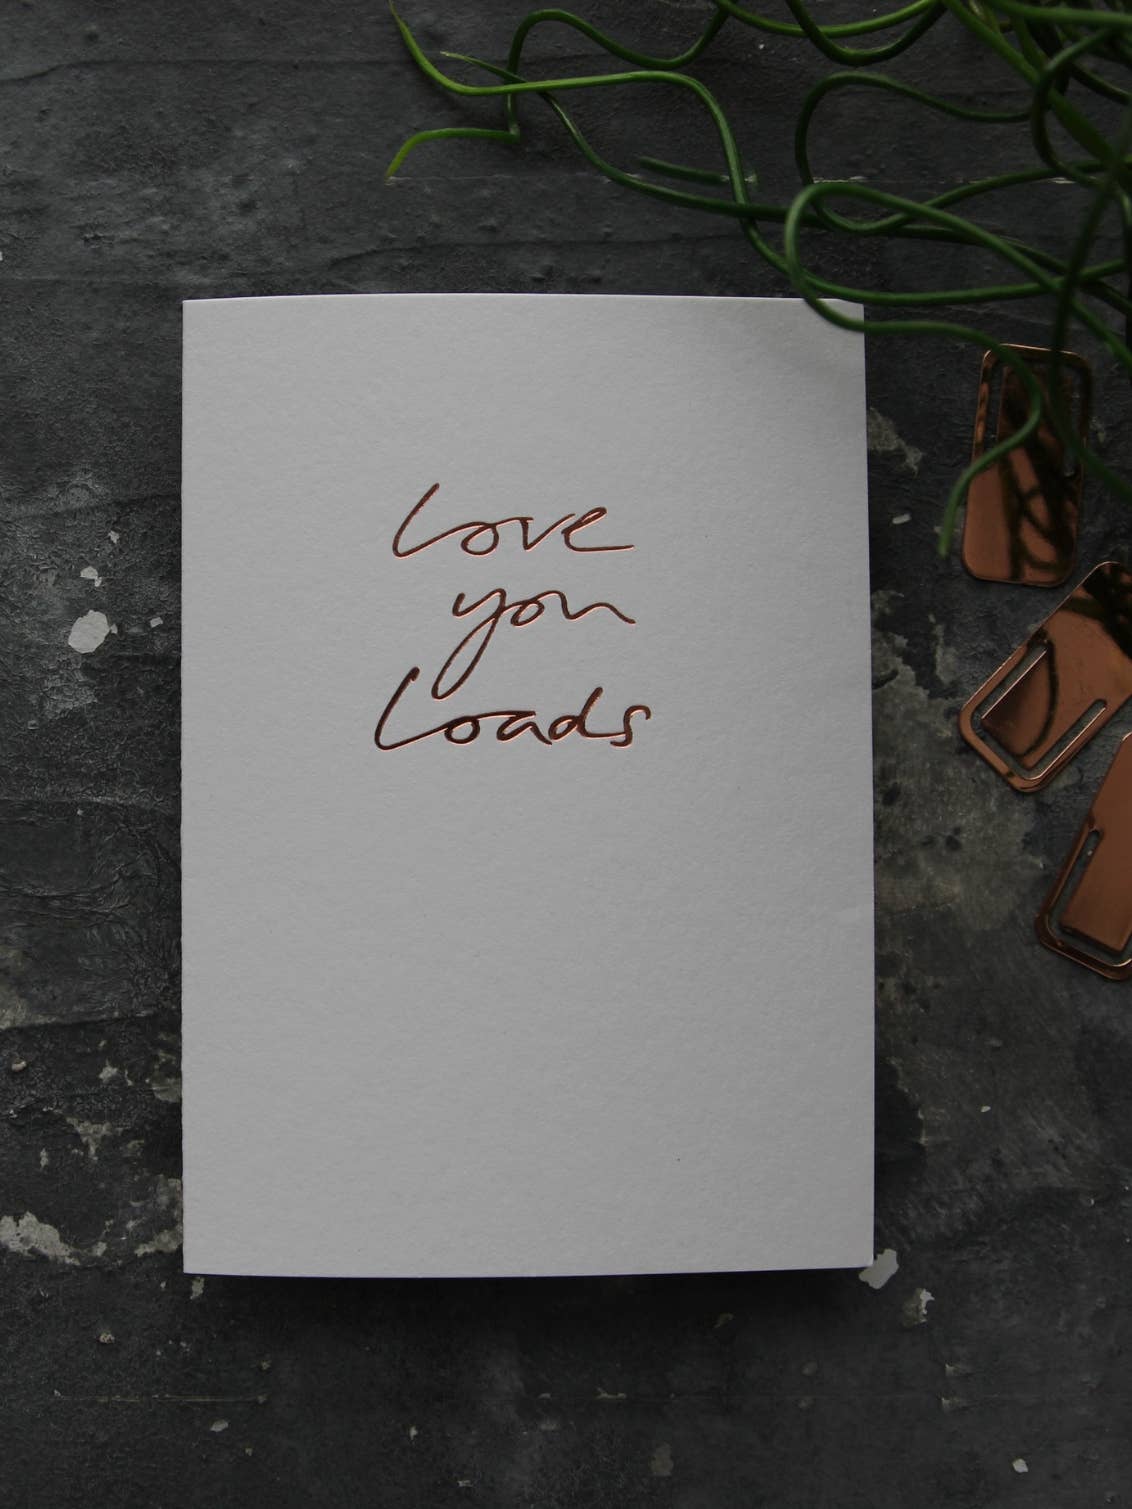 Love
you
Loads